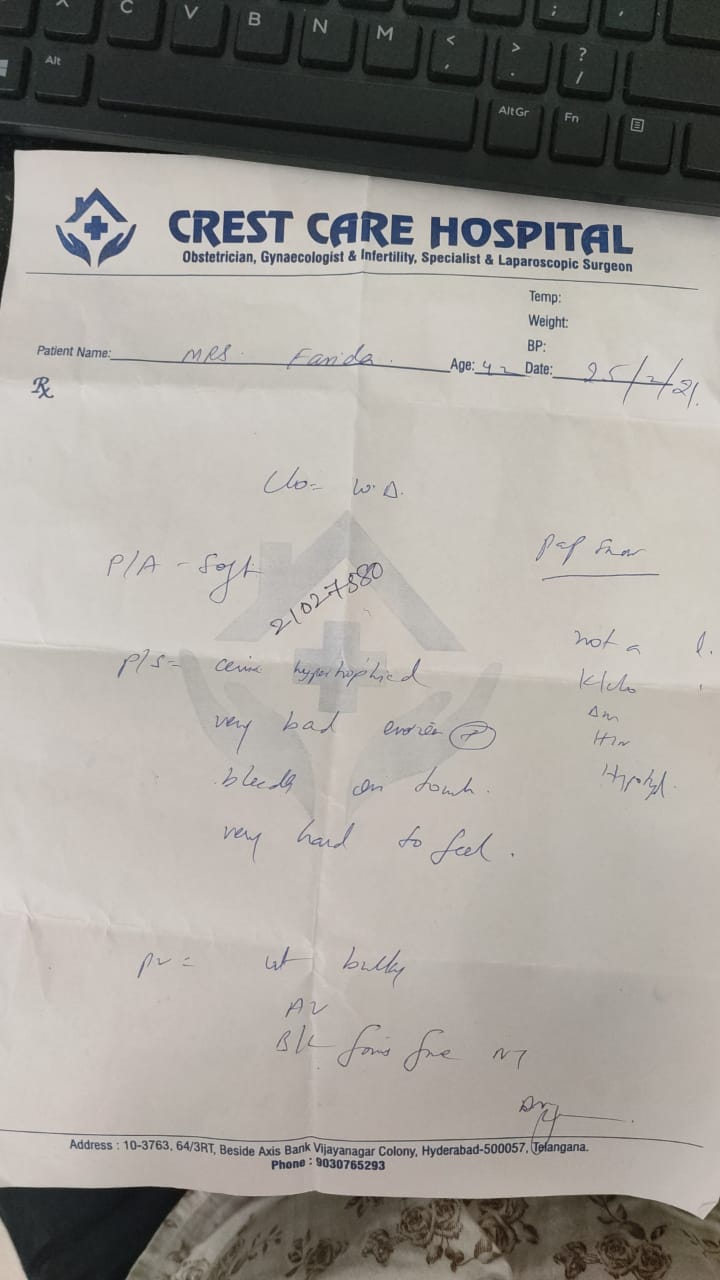 C
V
B
N
M
<
,
>
.
?
/
;
,
Alt
AltGr
Fn
CREST CARE HOSPITAL
Obstetrician, Gynaecologist & Infertility, Specialist & Laparoscopic Surgeon
Temp:
Weight:
BP:
Patient Name: MRS. Farida. Age: 42 Date: 25/2/21.
Rx
C/o = W.D.
Pap Smear
P/A - Soft
21027880
not a
K/c/o
P/S = cervix hypertrophied
DM
very bad erosion
HTN
bleeds on touch.
very hard to feel.
PV = ut bulky
AV
B/L
Address : 10-3763, 64/3RT, Beside Axis Bank Vijayanagar Colony, Hyderabad-500057, Telangana.
Phone : 9030765293